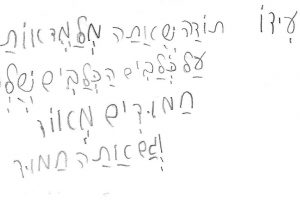 עִידוֹ תוֹדה שֶאַתה מְלַמֵד אוֹתַ
עַל כְּלַבִים הַכְּלַבִים שֶלִי
חַמוּדִים מְאוֹד
וְגַם אַתָה חַמוּד